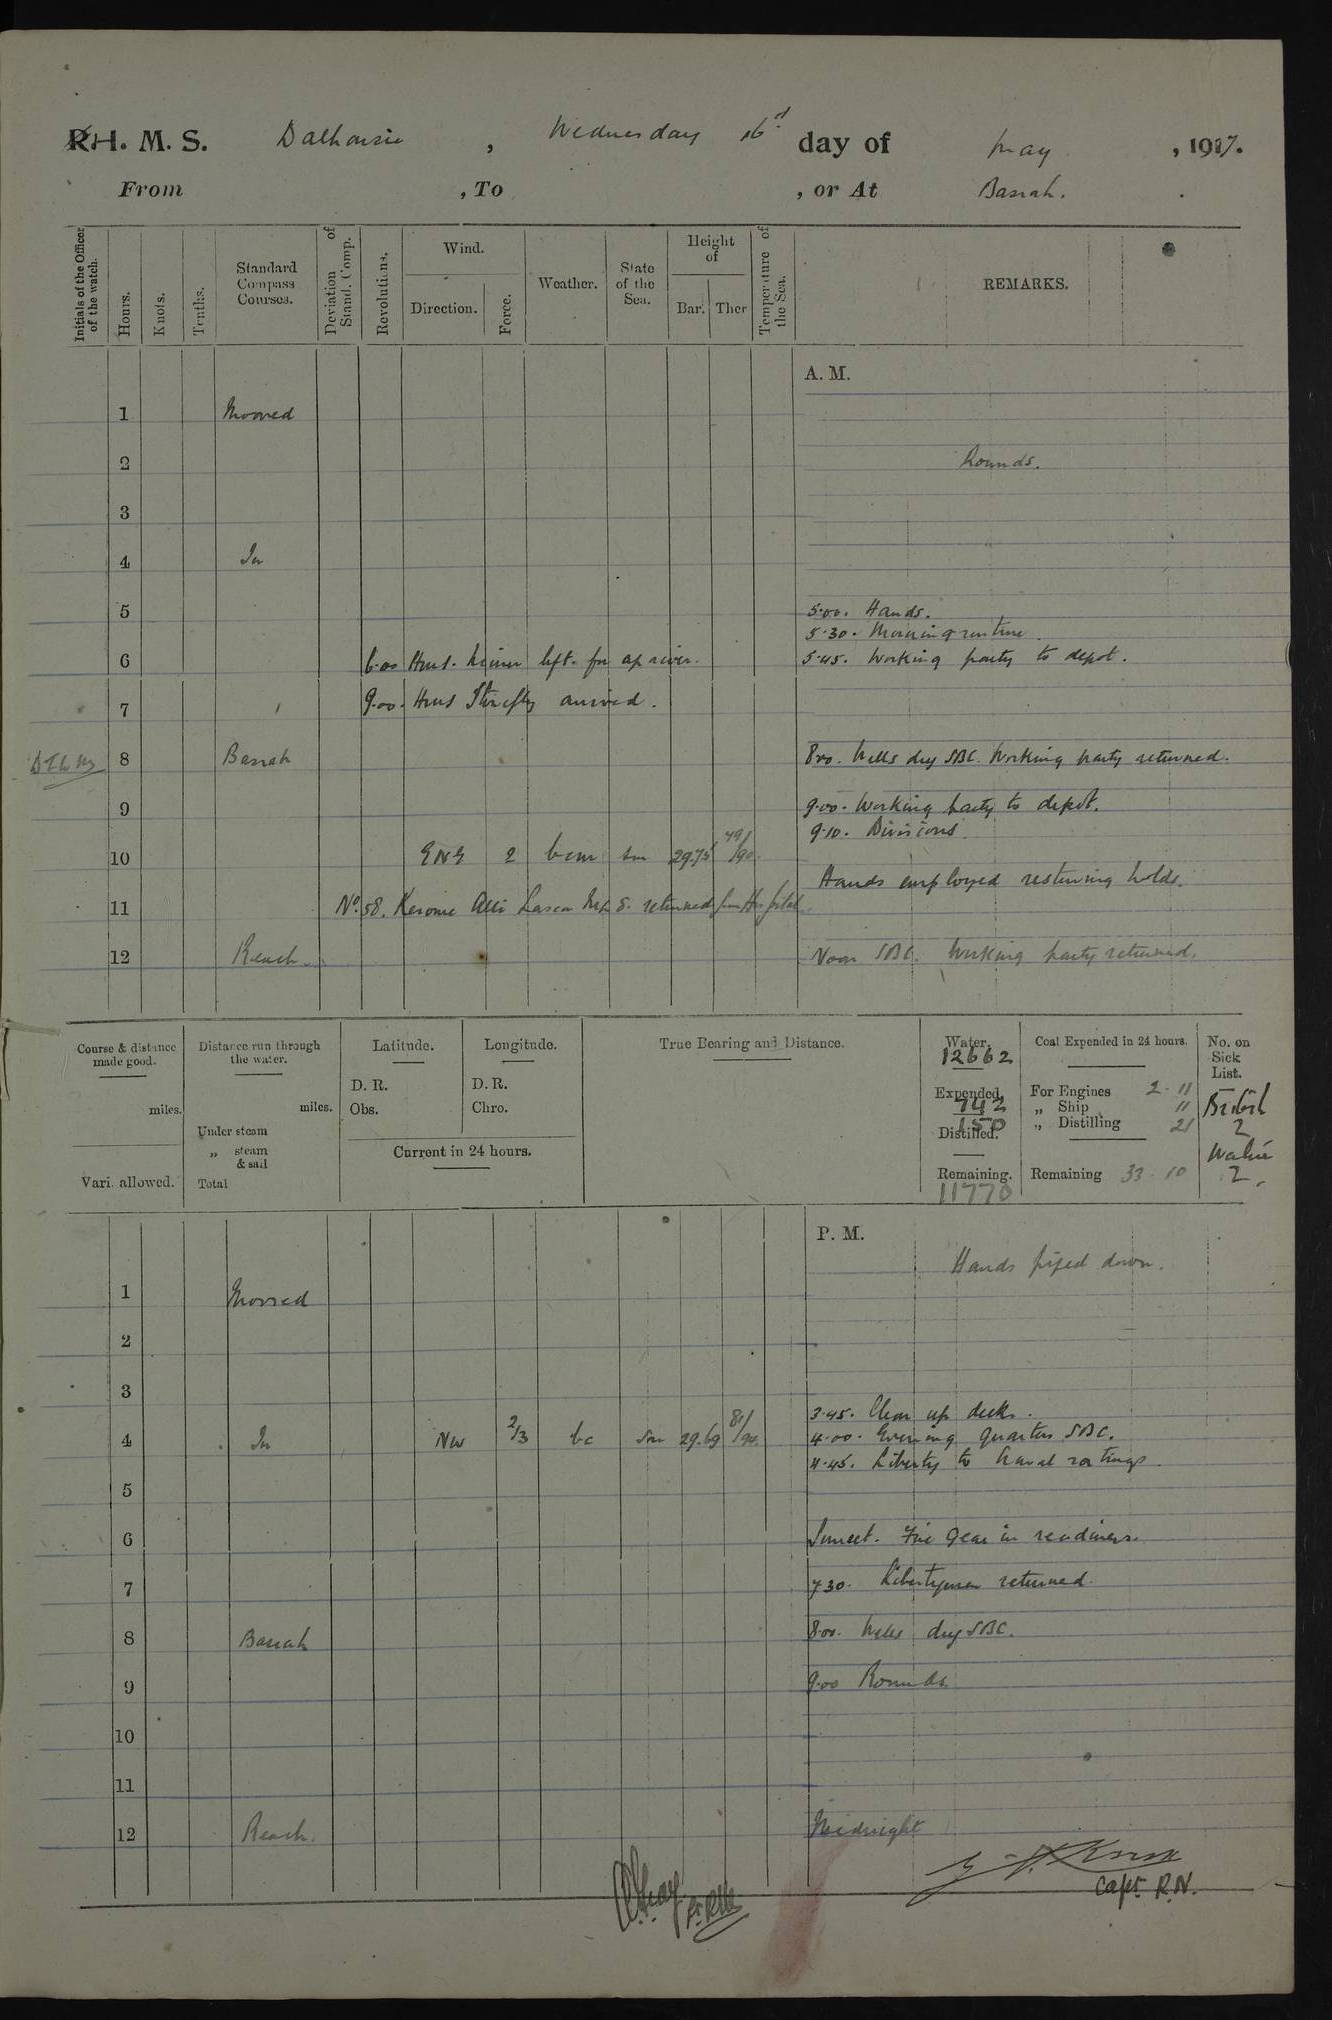 R H. M. S. Dalhousie, Wednesday 16 day of May, 1917.
From , To , or At Basrah.
Initials of the Officer of the watch.
Hours.
Knots.
Tenths.
Standard Compass Courses.
Deviation of Stand. Comp.
Revolutions.
Wind.
Direction.
Force.
Weather.
State of the Sea.
Height of
Bar.
Ther
Temperature of the Sea.
REMARKS.
A. M.
1 Moored
2 Rounds.
3
4 In
5 5.00. Hands.
5.30. Morning routine.
6 6.00 H.M.S. left for up river. 5.45. Working party to depot.
7 9.00. H.M.S. Firefly arrived.
8 Basrah 8.00. Wells dry SBC. Working party returned.
9 9.00. Working party to depot.
9.10. Divisions.
10 ENE 2 bcm sm 29.75 79/90
Hands employed restowing holds.
11 No. 58. Alli Lascar returned from Hospital.
12 Reach. Noon SBC. Working party returned.
Course & distance made good.
miles.
Vari. allowed.
Distance run through the water.
miles.
Under steam
„ steam & sail
Total
Latitude.
D. R.
Obs.
Longitude.
D. R.
Chro.
Current in 24 hours.
True Bearing and Distance.
Water.
12662
Expended.
742
150
Distilled.
Remaining.
11770
Coal Expended in 24 hours.
For Engines 2 - 11
„ Ship 11
„ Distilling 21
Remaining 33 - 10
No. on Sick List.
British
2
Native
2.
P. M.
Hands piped down.
1 Moored
2
3
3.45. Clear up decks.
4 In NW 2/3 bc sm 29.69 81/90 4.00. Evening quarters SBC.
4.45. Liberty to Naval ratings.
5
6 Sunset. Fire gear in readiness.
7 7.30. Libertymen returned.
8 Basrah 8.00. Wells dry SBC.
9 9.00 Rounds.
10
11
12 Reach. Midnight
Capt R.N.